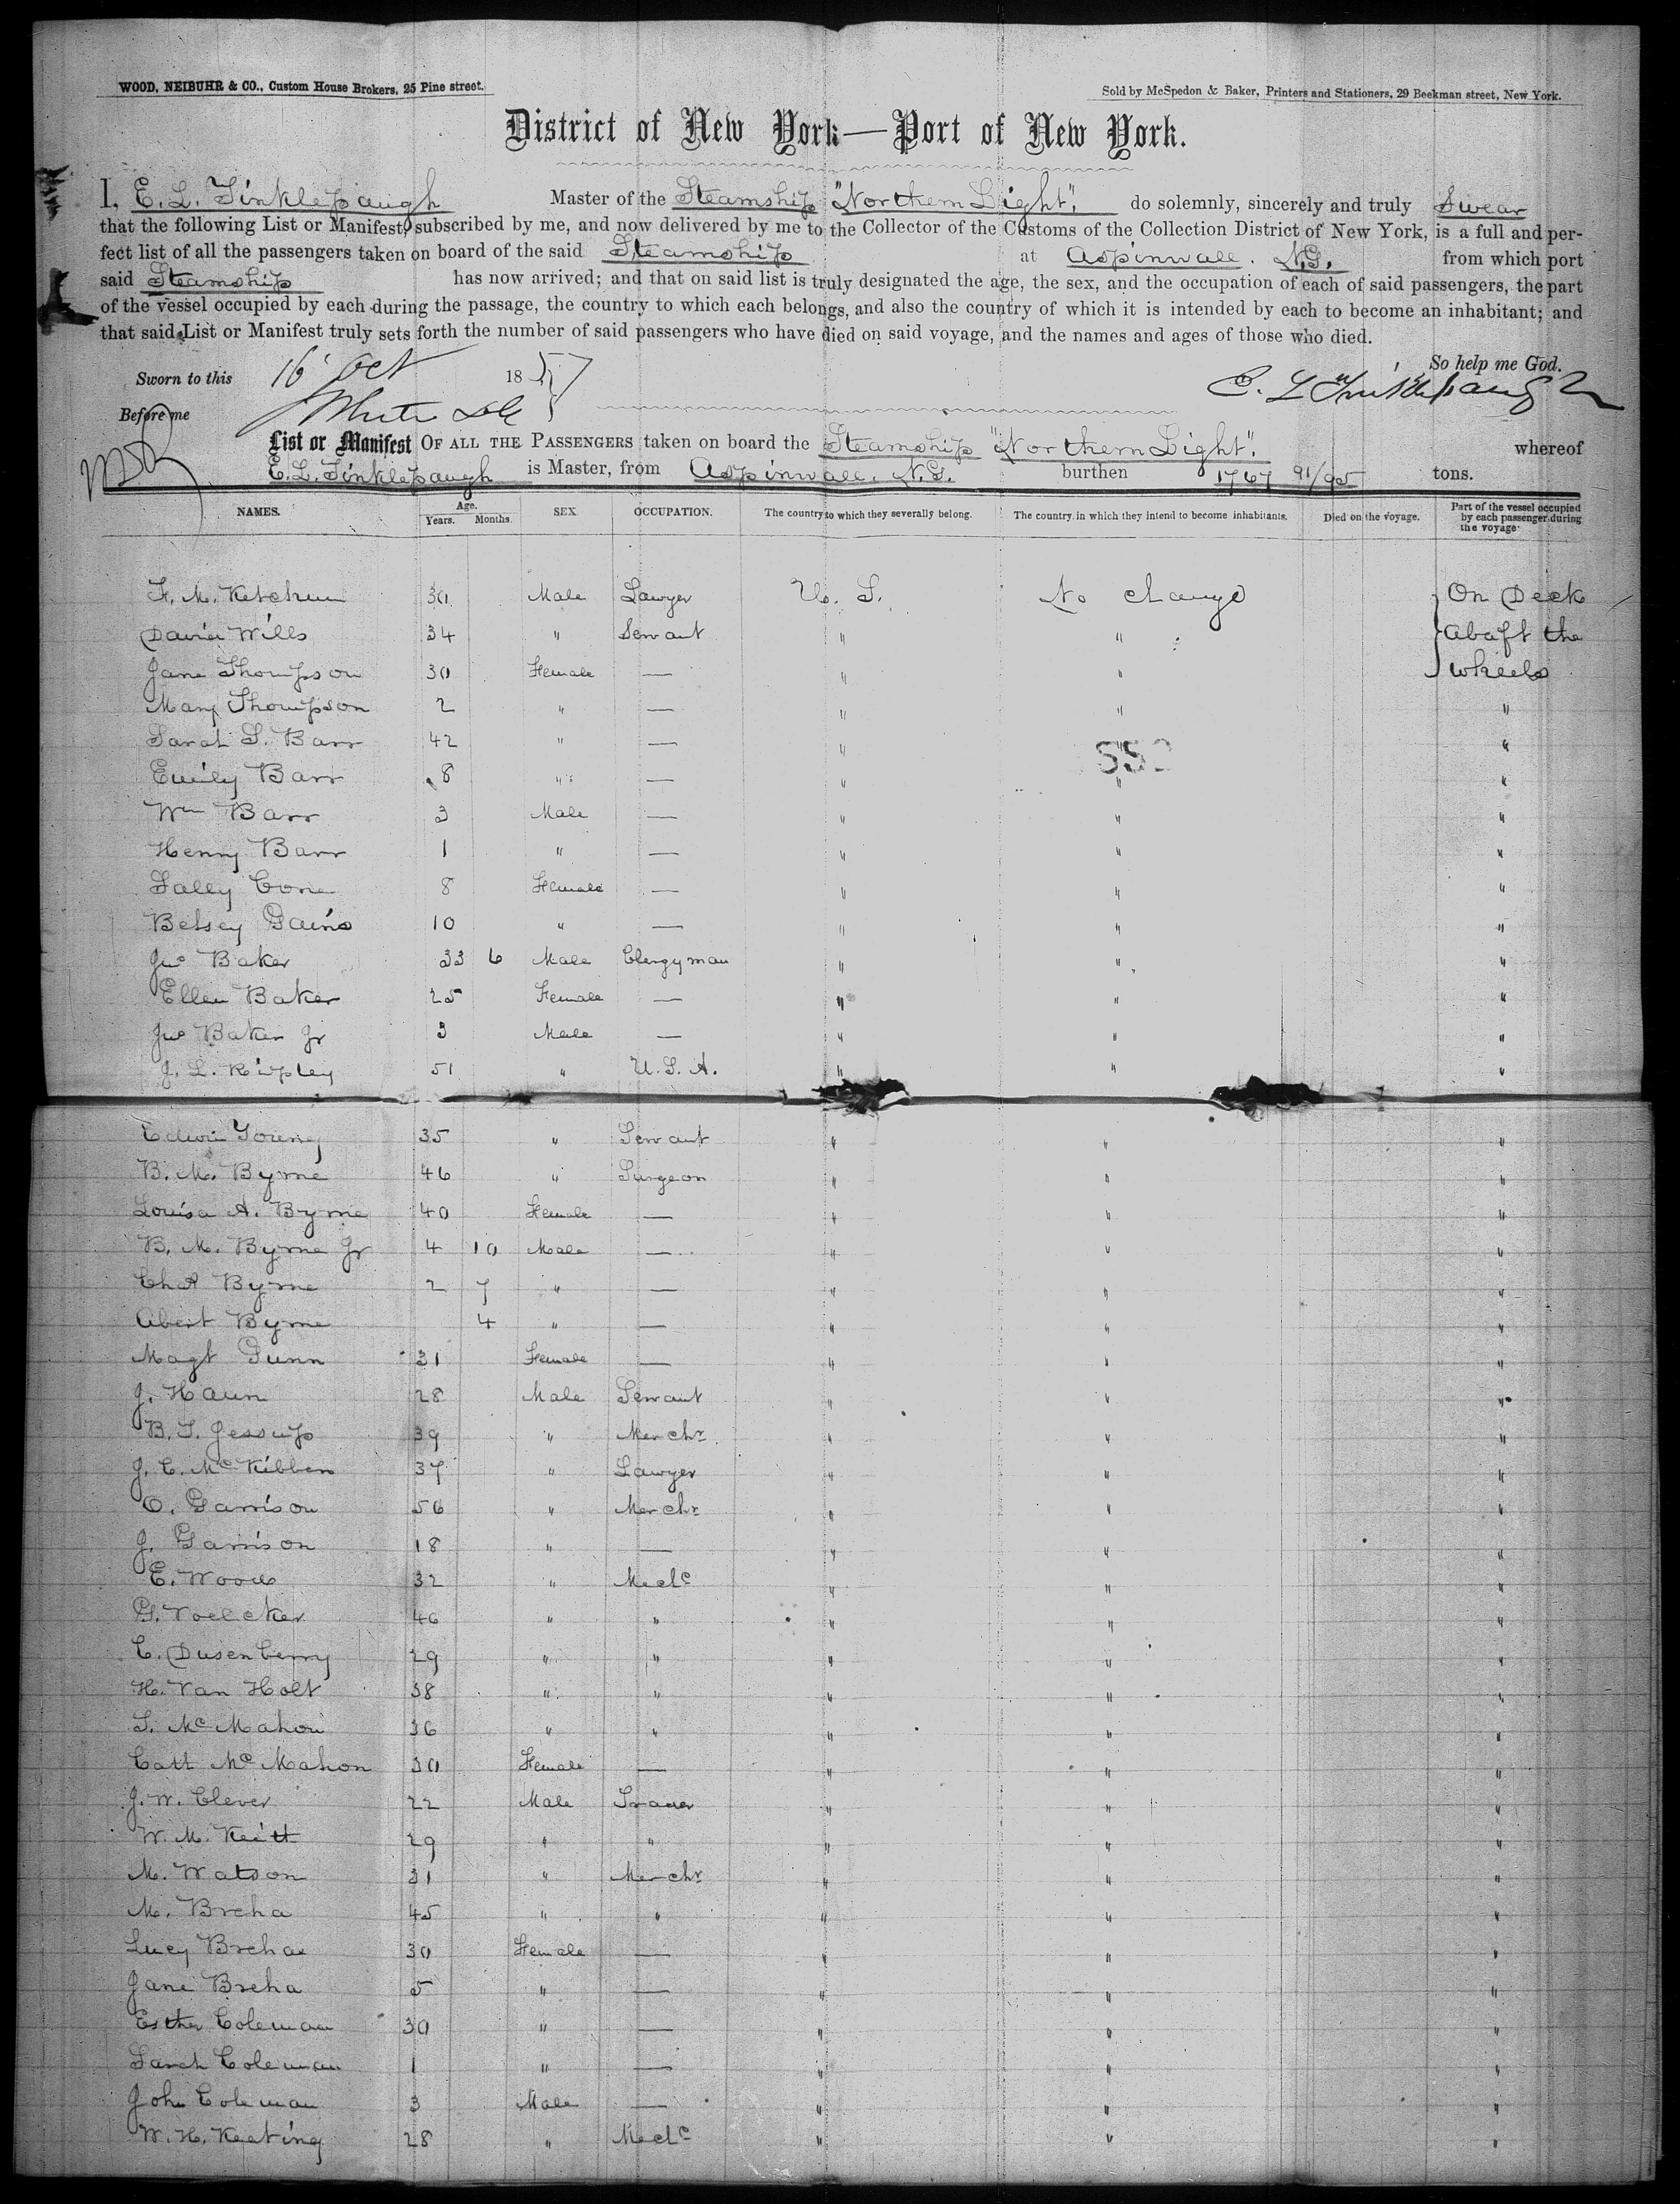 WOOD, NEIBUHR & CO., Custom House Brokers, 25 Pine street.
Sold by McSpedon & Baker, Printers and Stationers, 29 Beekman street, New York.
District of New York—Port of New York.
I, E. L. Tinklepaugh Master of the Steamship "Northern Light". do solemnly, sincerely and truly Swear
that the following List or Manifest, subscribed by me, and now delivered by me to the Collector of the Customs of the Collection District of New York, is a full and per-
fect list of all the passengers taken on board of the said Steamship at Aspinwall. N.G. from which port
said Steamship has now arrived; and that on said list is truly designated the age, the sex, and the occupation of each of said passengers, the part
of the vessel occupied by each during the passage, the country to which each belongs, and also the country of which it is intended by each to become an inhabitant; and
that said List or Manifest truly sets forth the number of said passengers who have died on said voyage, and the names and ages of those who died.
So help me God.
Sworn to this 16 Oct 1857
E. L. Tinklepaugh
Before me
List or Manifest OF ALL THE PASSENGERS taken on board the Steamship "Northern Light". whereof
E. L. Tinklepaugh is Master, from Aspinwall. N.G. burthen 1767 91/95 tons.
NAMES. Age. Years. Months. SEX. OCCUPATION. The country to which they severally belong. The country in which they intend to become inhabitants. Died on the voyage. Part of the vessel occupied by each passenger during the voyage
F. M. Ketchum 30 Male Lawyer U. S. No change On Deck
David Wills 34 " Servant " " abaft the
Jane Thompson 30 Female — " " wheels
Mary Thompson 2 " — " " "
Sarah S. Barr 42 " — " " "
552
Emily Barr 8 " — " " "
Wm Barr 3 Male — " " "
Henry Barr 1 " — " " "
Sally Cone 8 Female — " " "
Betsey Gains 10 " — " " "
Jno Baker 33 6 Male Clergyman " " "
Ellen Baker 25 Female — " " "
Jno Baker Jr 3 Male — " " "
J. L. Ripley 51 " U.S.A. " " "
Edwin Young 35 " Servant " " "
B. M. Byrne 46 " Surgeon " " "
Louisa A. Byrne 40 Female — " " "
B. M. Byrne Jr 4 10 Male — " " "
Chs Byrne 2 7 " — " " "
Abert Byrne 4 " — " " "
Magt Dunn 31 Female — " " "
J. Haun 28 Male Servant " " "
B. S. Jessup 39 " Mercht " " "
J. C. McKibben 37 " Lawyer " " "
O. Garrison 56 " Mercht " " "
J. Garrison 18 " — " " "
E. Woods 32 " Mechc " " "
G. Voelcker 46 " " " " "
C. Dusenberry 29 " " " " "
H. Van Holt 38 " " " " "
S. McMahon 36 " " " " "
Cath McMahon 30 Female — " " "
J. W. Clever 22 Male Trader " " "
W. M. Keitt 29 " " " " "
M. Watson 31 " Mercht " " "
M. Breha 45 " " " " "
Lucy Breha 30 Female — " " "
Jane Breha 5 " — " " "
Esther Coleman 30 " — " " "
Sarah Coleman 1 " — " " "
John Coleman 3 Male — " " "
W. H. Keating 28 " Mechc " " "